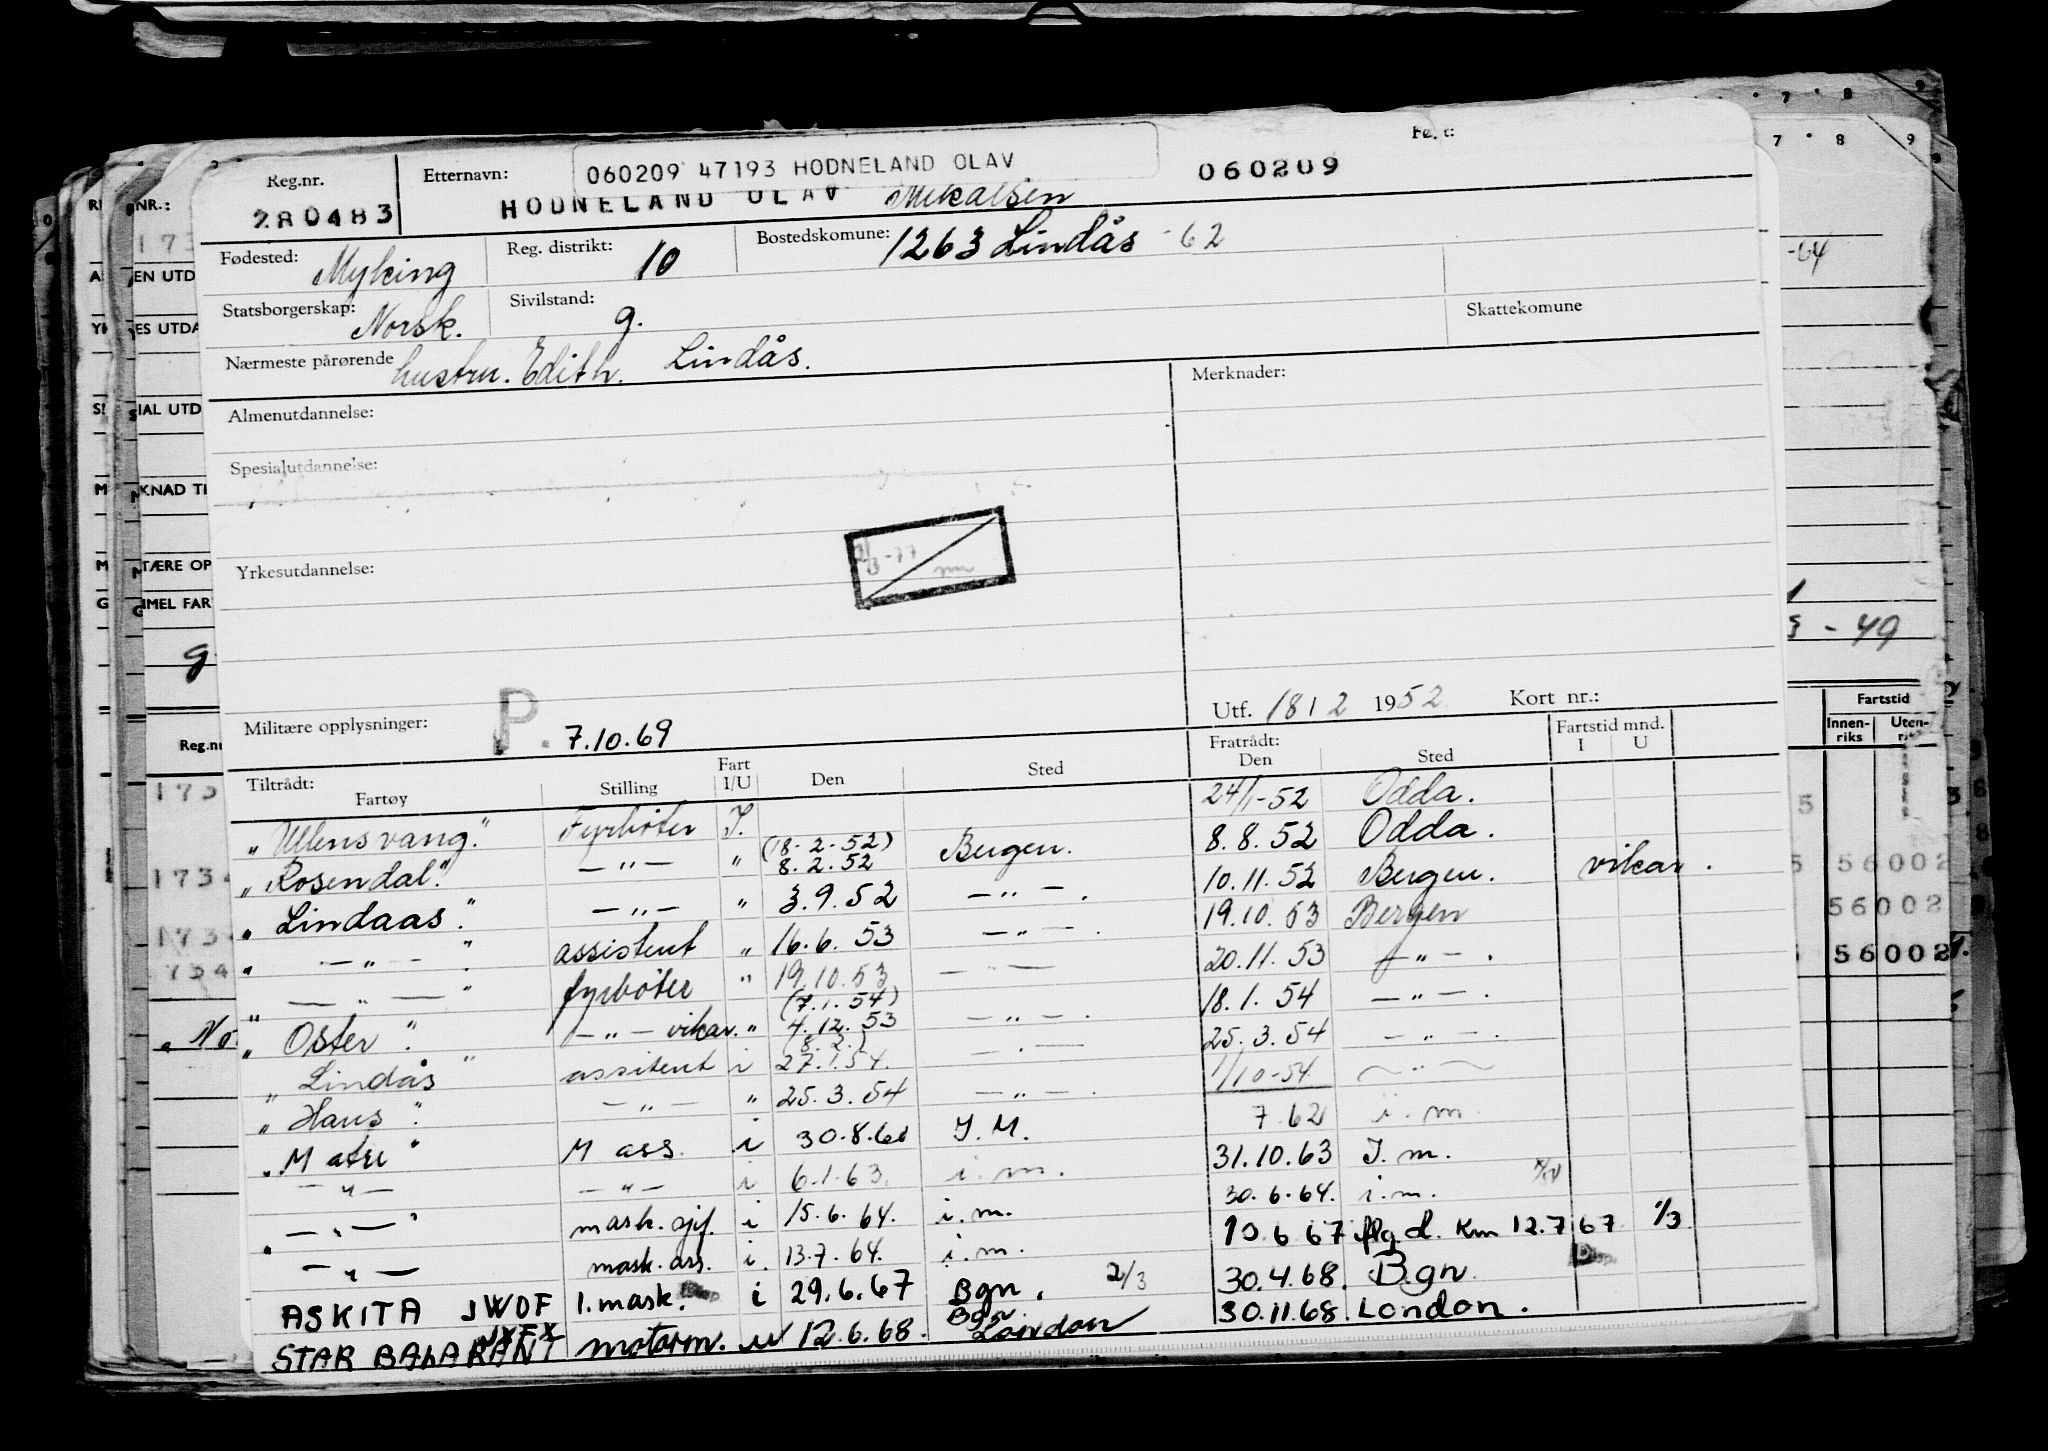 Reg.nr. 280483
Etternavn: 060209 47193 HODNELAND OLAV
HODNELAND OLAV Mikalsen
060209
Fødested: Myking
Reg. distrikt: 10
Bostedskomune: 1263 Lindås -62
Statsborgerskap: Norsk.
Sivilstand: g.
Skattekomune
Nærmeste pårørende hustru. Edith. Lindås.
Merknader:
Almenutdannelse:
Spesialutdannelse:
Yrkesutdannelse:
Militære opplysninger: P. 7.10.69
Utf. 18/2 1952 Kort nr.:
Tiltrådt: Fratrådt: Fartstid mnd.
Fartøy Stilling Fart I/U Den Sted Den Sted I U
"Ullensvang." Fyrbøter I. 24/1-52 Odda.
"Rosendal." —"— " (18-2-52) 8.2.52 Bergen. 8.8.52 Odda.
"Lindaas." —"— " 3.9.52 —"—. 10.11.52 Bergen. vikar.
" —"— " assistent " 16.6.53 —"—. 19.10.53 Bergen
—"— " fyrbøter " 19.10.53 —"— 20.11.53 —"—.
"Oster". —"— vikar. " (7.1.54) 4.12.53 —"—. 18.1.54 —"—.
"Lindås" assitent i 27.1.54. —"— 25.3.54 —"—.
"Haus". —"— " 25.3.54 —"—. 1/10-54 —"—
"Matre" M ass. i 30.8.60 I.M. 7 62 i.m.
—"— —"— i 6.1.63. i.m. 31.10.63 I.m.
—"— mask.sjf. i 15.6.64. i.m. 30.6.64. i.m.
—"— mask.ass. i. 13.7.64. i.m. 10.6 67 flg d. Km 12.7 67 1/3
ASKITA JWOF 1.mask. i 29.6.67 Bgn. 2/3 30.4.68. Bgn.
STAR BALARANT JXFX motorm. u 12.6.68. Bgn London 30.11.68. London.
-64
- 49
Fartstid
Innen-riks Uten-
56002
56002
56002